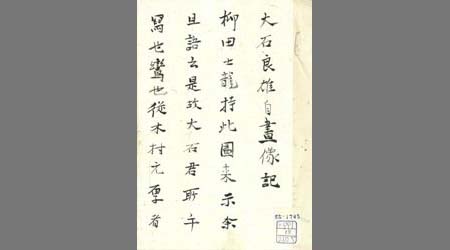 大石良雄自畫像記
柳田士龍持此圖来示余
且語云是故大石君所手
寫也鸞也從木村元厚者